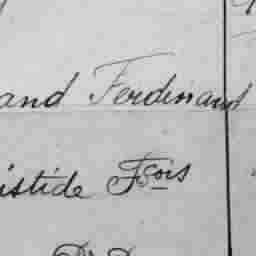 and Ferdinand
istide Fçois